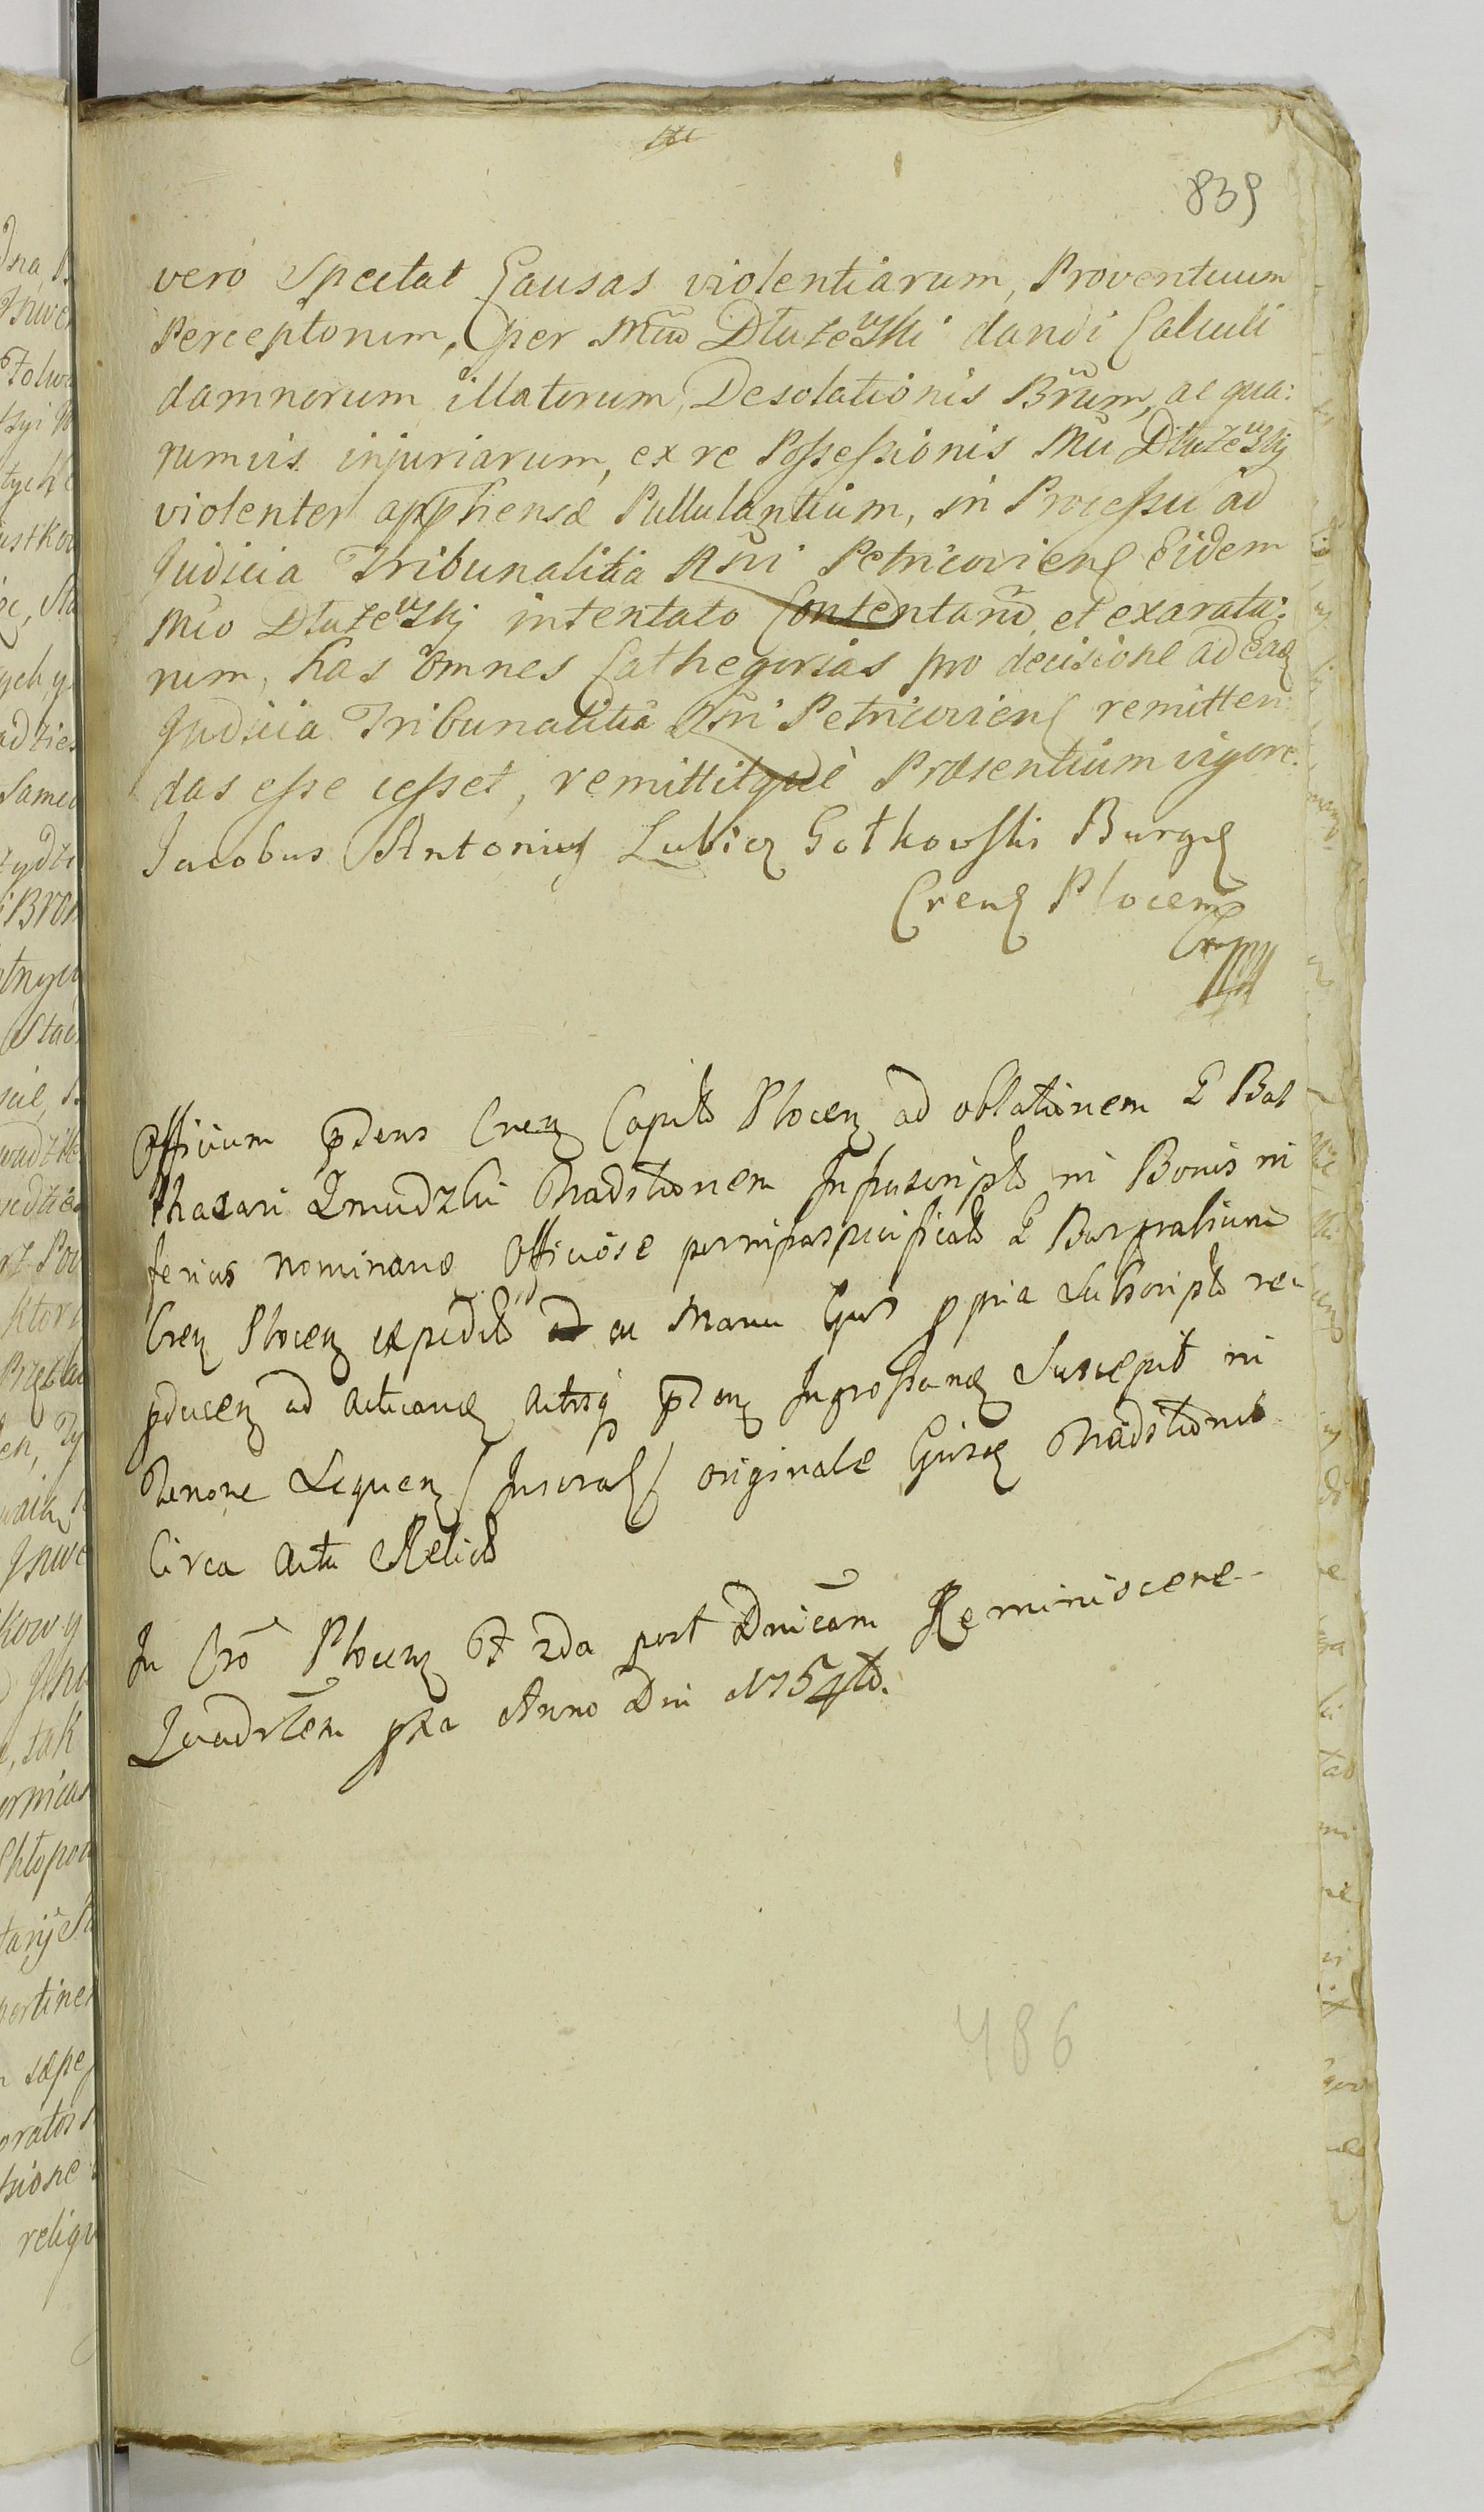 839
vero Spectat Causas violentiarum, Proventuum
Perceptorum, per Mũm Dłużewski dandi Calculi
damnorum illatorum, Desolationis Brum, ac qua:
rumvis injuriarum, ex re Possessionis Mũ Dłużewskj
violenter appħensæ Pullulantium, in Processu ad
Judicia Tribunalitia Rñi Petricovien Eidem
Mũo Dłużewskj intentato Contentarũ, et exarata:
rum, has omnes Cathegorias pro decisione ad Ead
Judicia Tribunalitia Rñi Petricovien remitten:
das esse censet, remittitque Præsentium vigore.
Jacobus Antonius Lubicz Gotkowski Burg
Cren Plocen
Officium pdens Cren Capitle Plocen ad oblationem G Bal
thazari Zmudzki Traditionem Infrascripte in Bonis in
ferius nominand Officiose specificate Burgrabium
Cren Plocen expedite ac Manu Ejus ppria Subscripte re
pducen ad Acticand Actisq pden Ingrossand Suscepit in
Tenore Sequen Inseral originale Ejusd Traditionis
Circa Acta Relicte
In Cro Plocen F 2da post Dnicam Reminiscere
Quadrlem pxa Anno Dni 1754to.
486